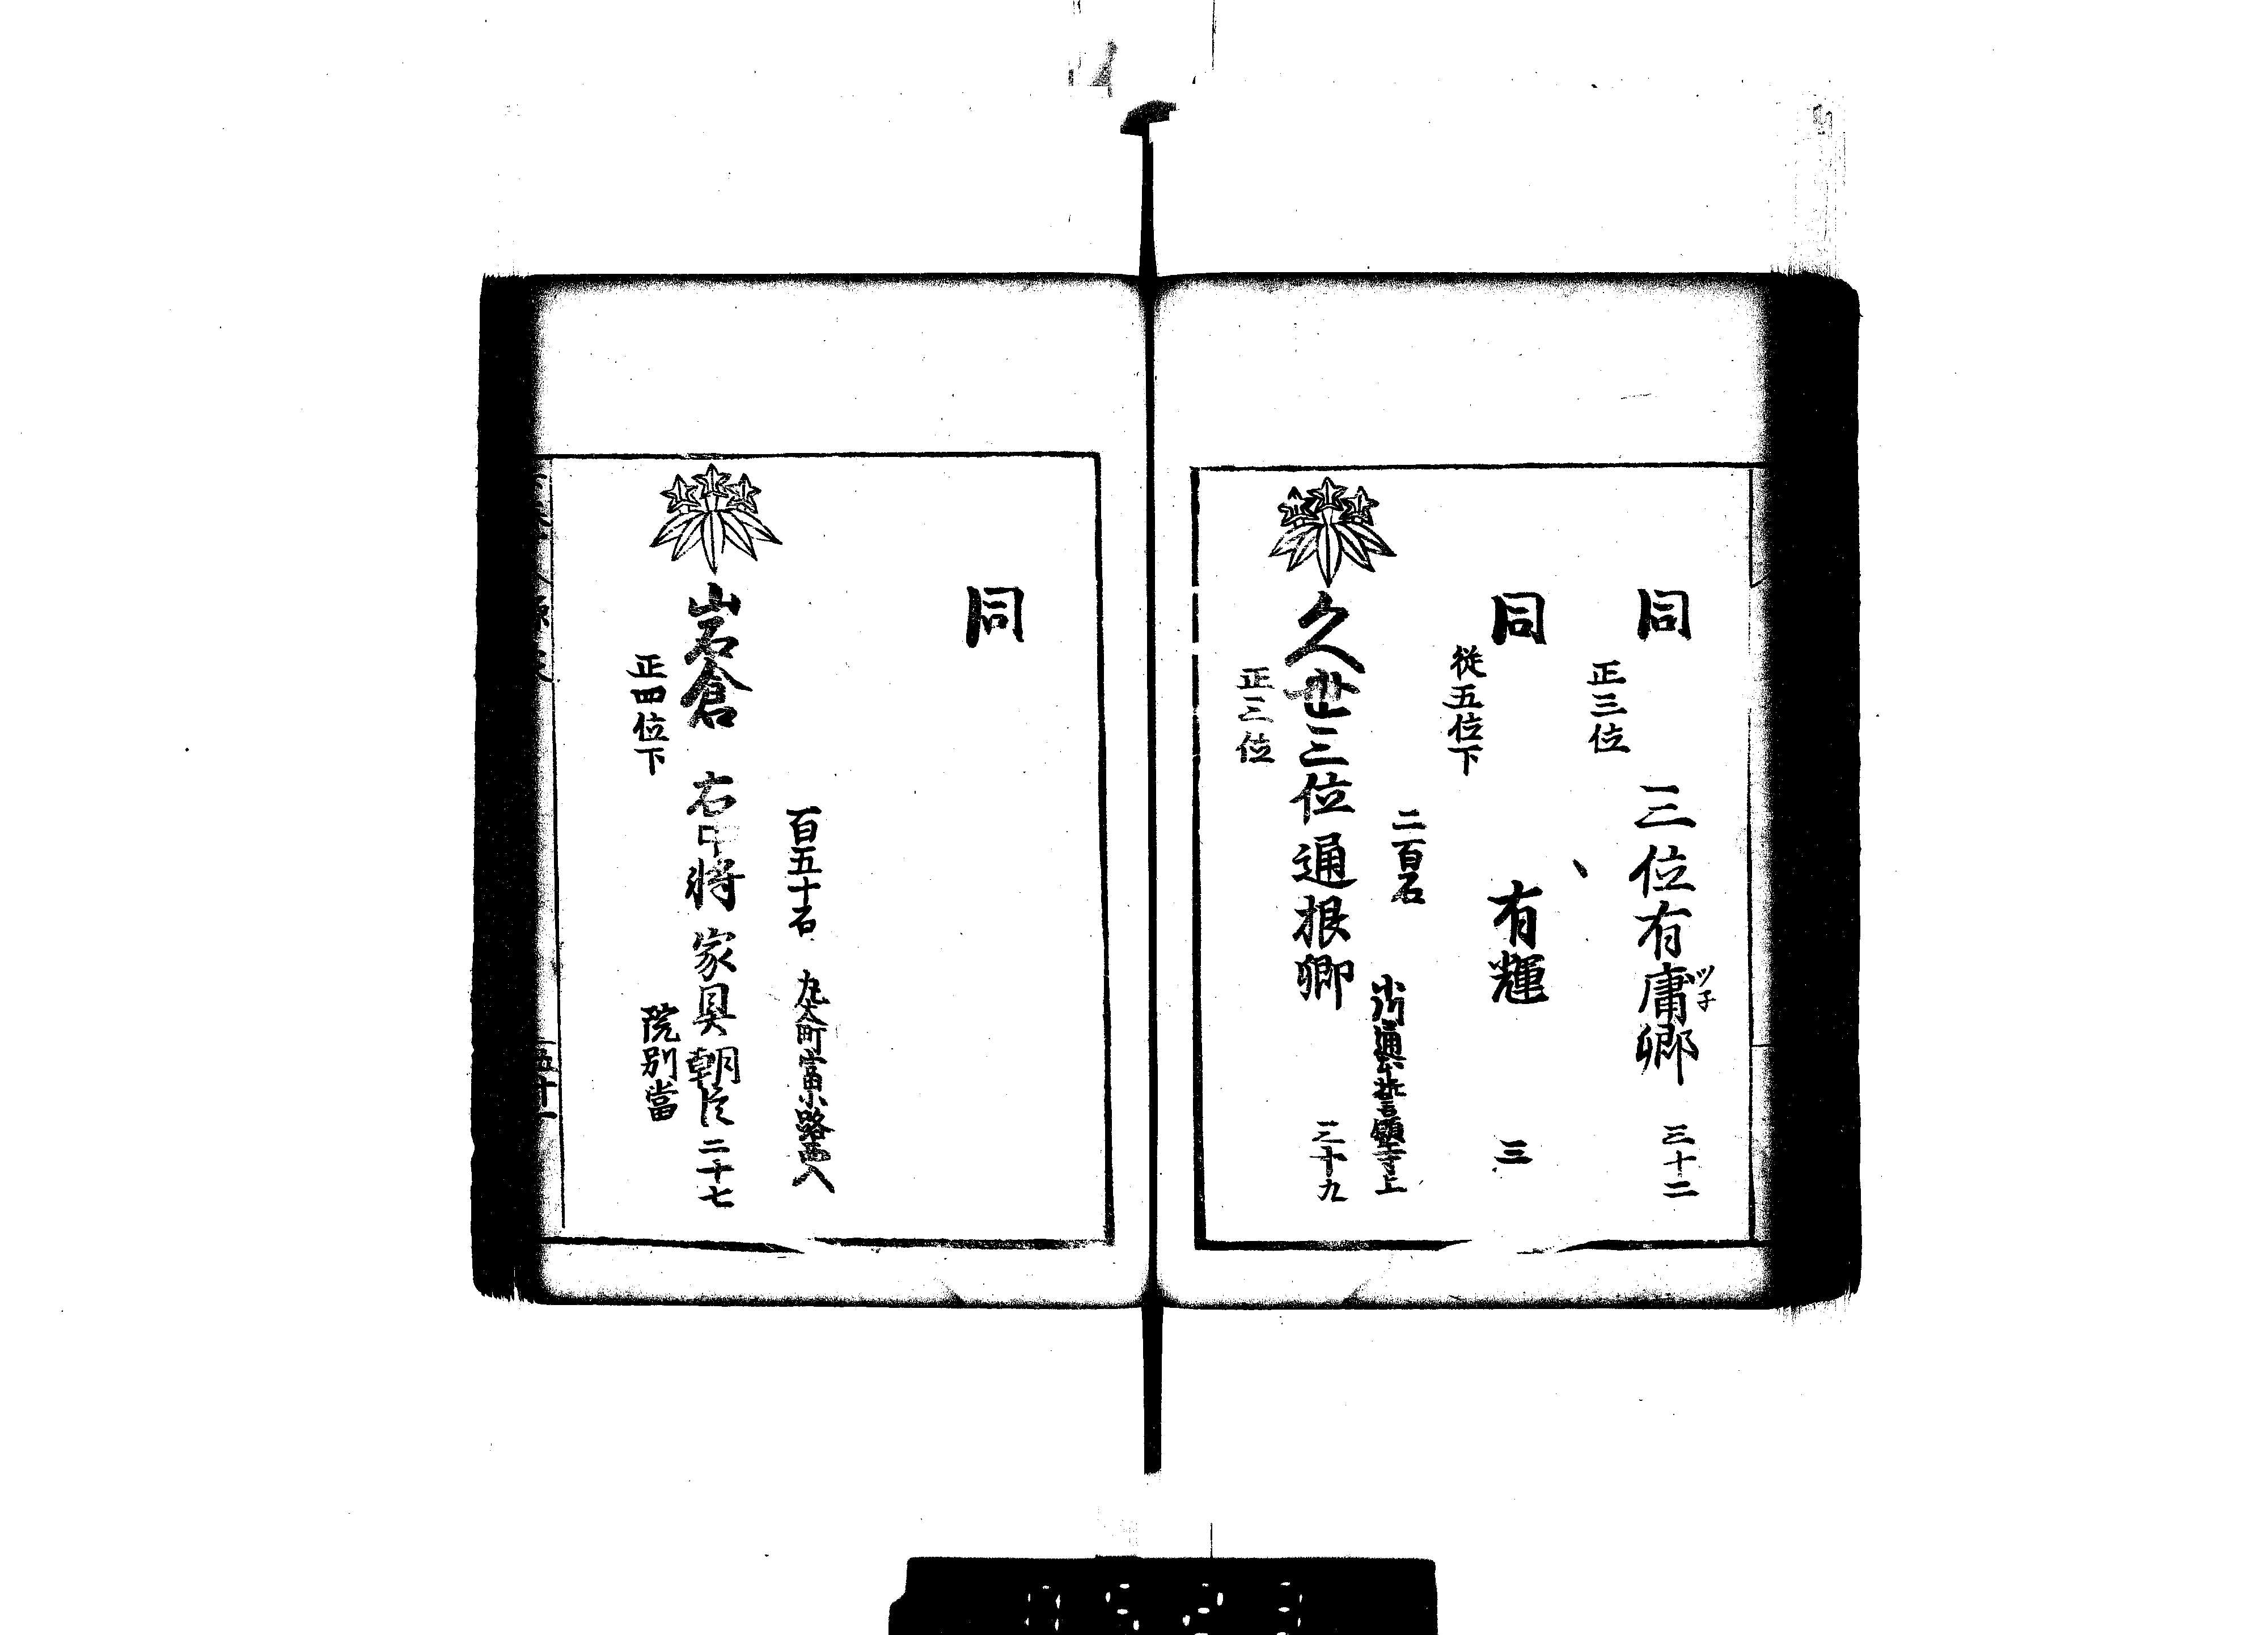 同 三位有庸卿 三十二
ツ子
正三位
同 有輝 三
從五位下
二百石 小川通 誓願寺上
久世三位通根卿 三十九
正三位
同
百五十石 丸太町富小路西入
岩倉 右中將家具朝臣 二十七
正四位下 院別當
五十一